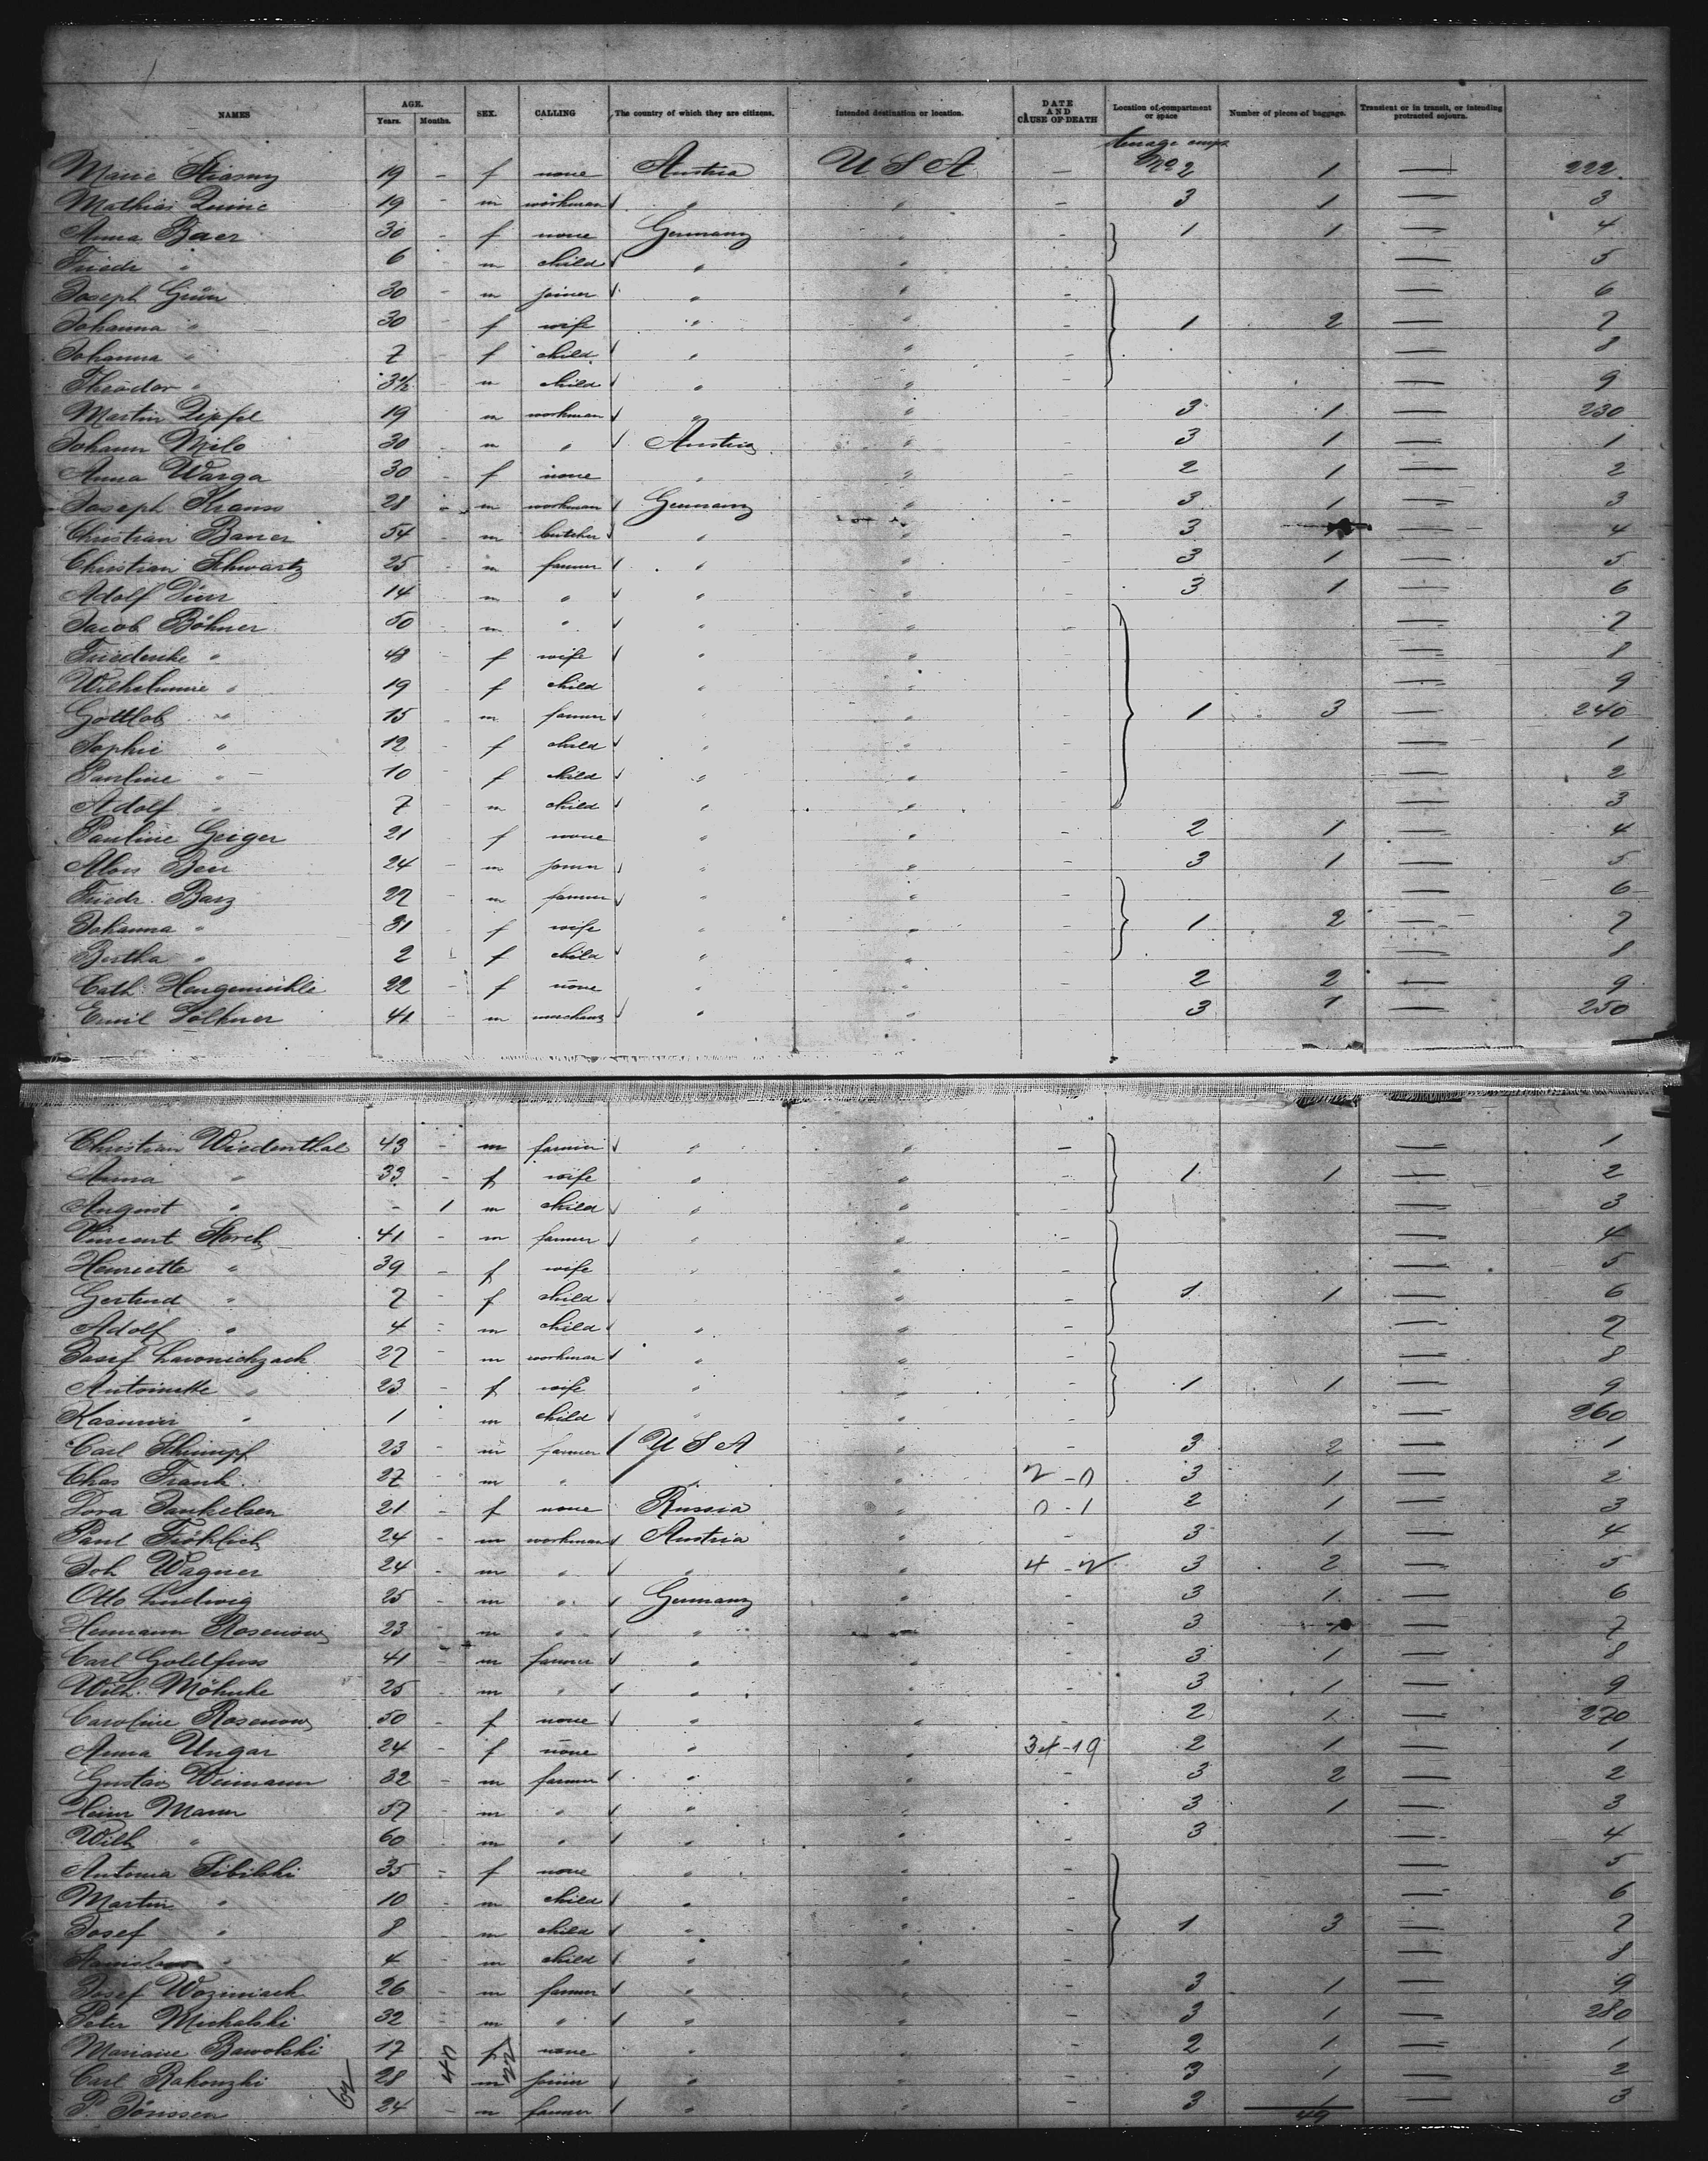 NAMES AGE. Years. Months. SEX. CALLING The country of which they are citizens. Intended destination or location. DATE AND CAUSE OF DEATH Location of compartment or space Number of pieces of baggage. Transient or in transit, or intending protracted sojourn.
Marie 19 - f none Austria U S A - No 2 1 — 222
Mathias 19 - m workman " " - 3 1 — 3
Anna Baer 30 - f none Germany " - 1 1 — 4
Friedr " 6 - m child " " - — 5
Joseph Grün 30 - m joiner " " - — 6
Johanna " 30 - f wife " " - 1 2 — 7
Johanna " 7 - f child " " - — 8
Theodor " m child " " - — 9
Martin Zipfel 19 - m workman " " - 3 1 — 230
Johann Milo 30 - m " Austria " - 3 1 — 1
Anna Warga 30 - f none " " - 2 1 — 2
Joseph Krauss 28 - m workman Germany " - 3 1 — 3
Christian Bauer 54 - m butcher " " - 3 — 4
Christian Schwartz 25 - m farmer " " - 3 1 — 5
Adolf Dürr 14 - m " " " - 3 1 — 6
Jacob Böhner 50 - m " " " - — 7
Friederike " 48 - f wife " " - — 8
Wilhelmine " 19 - f child " " - — 9
Gottlob " 15 - m farmer " " - 1 3 — 240
Sophie " 12 - f child " " - — 1
Pauline " 10 - f child " " - — 2
Adolf " 7 - m child " " - — 3
Pauline Geiger 21 - f none " " - 2 1 — 4
Alois 24 - m " " - 3 1 — 5
Friedr. Barz 27 - m farmer " " - — 6
Johanna " 31 - f wife " " - 1 2 — 7
Bertha " 2 f child " " - — 8
Cath. Hengemühle 22 - f none " " - 2 2 — 9
Emil Söllner 41 - m " " - 3 1 — 250
Christian Wiedenthal 43 - m farmer " " - — 1
Anna " 33 - f wife " " - 1 1 — 2
August " - 1 m child " " - — 3
Vincent Storch 41 - m farmer " " - — 4
Henriette " 39 - f wife " " - — 5
Gertrud " 7 - f child " " - 1 1 — 6
Adolf " 4 - m child " " - — 7
Josef Lawnichzack 27 - m workman " " - — 8
Antoinette " 23 - f wife " " - 1 1 — 9
Kasimir " 1 - m child " " - — 260
Carl Schimpf 23 - m farmer U S A " - 3 2 — 1
Chas Frank 27 - m " " " 3 1 — 2
Dora Jankelsen 21 - f none Russia " 0-1 2 1 — 3
Paul Fröhlich 24 - m workman Austria " - 3 1 — 4
Joh Wagner 24 - m " " " 3 2 — 5
Otto Ludwig 25 - m " Germany " - 3 1 — 6
Hermann Rosenow 23 - m " " " - 3 — 7
Carl Goldfuss 41 - m farmer " " - 3 1 — 8
Wilh. Möhnke 25 - m " " " - 3 1 — 9
Caroline Rosenow 50 - f none " " - 2 1 — 270
Anna Ungar 24 - f none " " 34-19 2 1 — 1
Gustav Weimann 32 - m farmer " " - 3 2 — 2
Heinr Mann 57 - m " " " - 3 1 — 3
Wilh " 60 - m " " " - 3 — 4
Antonia Sibilski 35 - f none " " - — 5
Martin " 10 - m child " " - — 6
Josef " 8 - m child " " - 1 3 — 7
Stanislaus " 4 - m child " " - — 8
Josef Wozimiack 26 - m farmer " " - 3 1 — 9
Peter Michalski 32 - m " " " - 3 1 — 280
Mariane Bawolski 17 f none " " - 2 1 — 1
Carl Rakonzki 28 m joiner " " - 3 1 — 2
P. Jönssen 24 - m farmer " " - 3 1 — 3
62 40 22 49